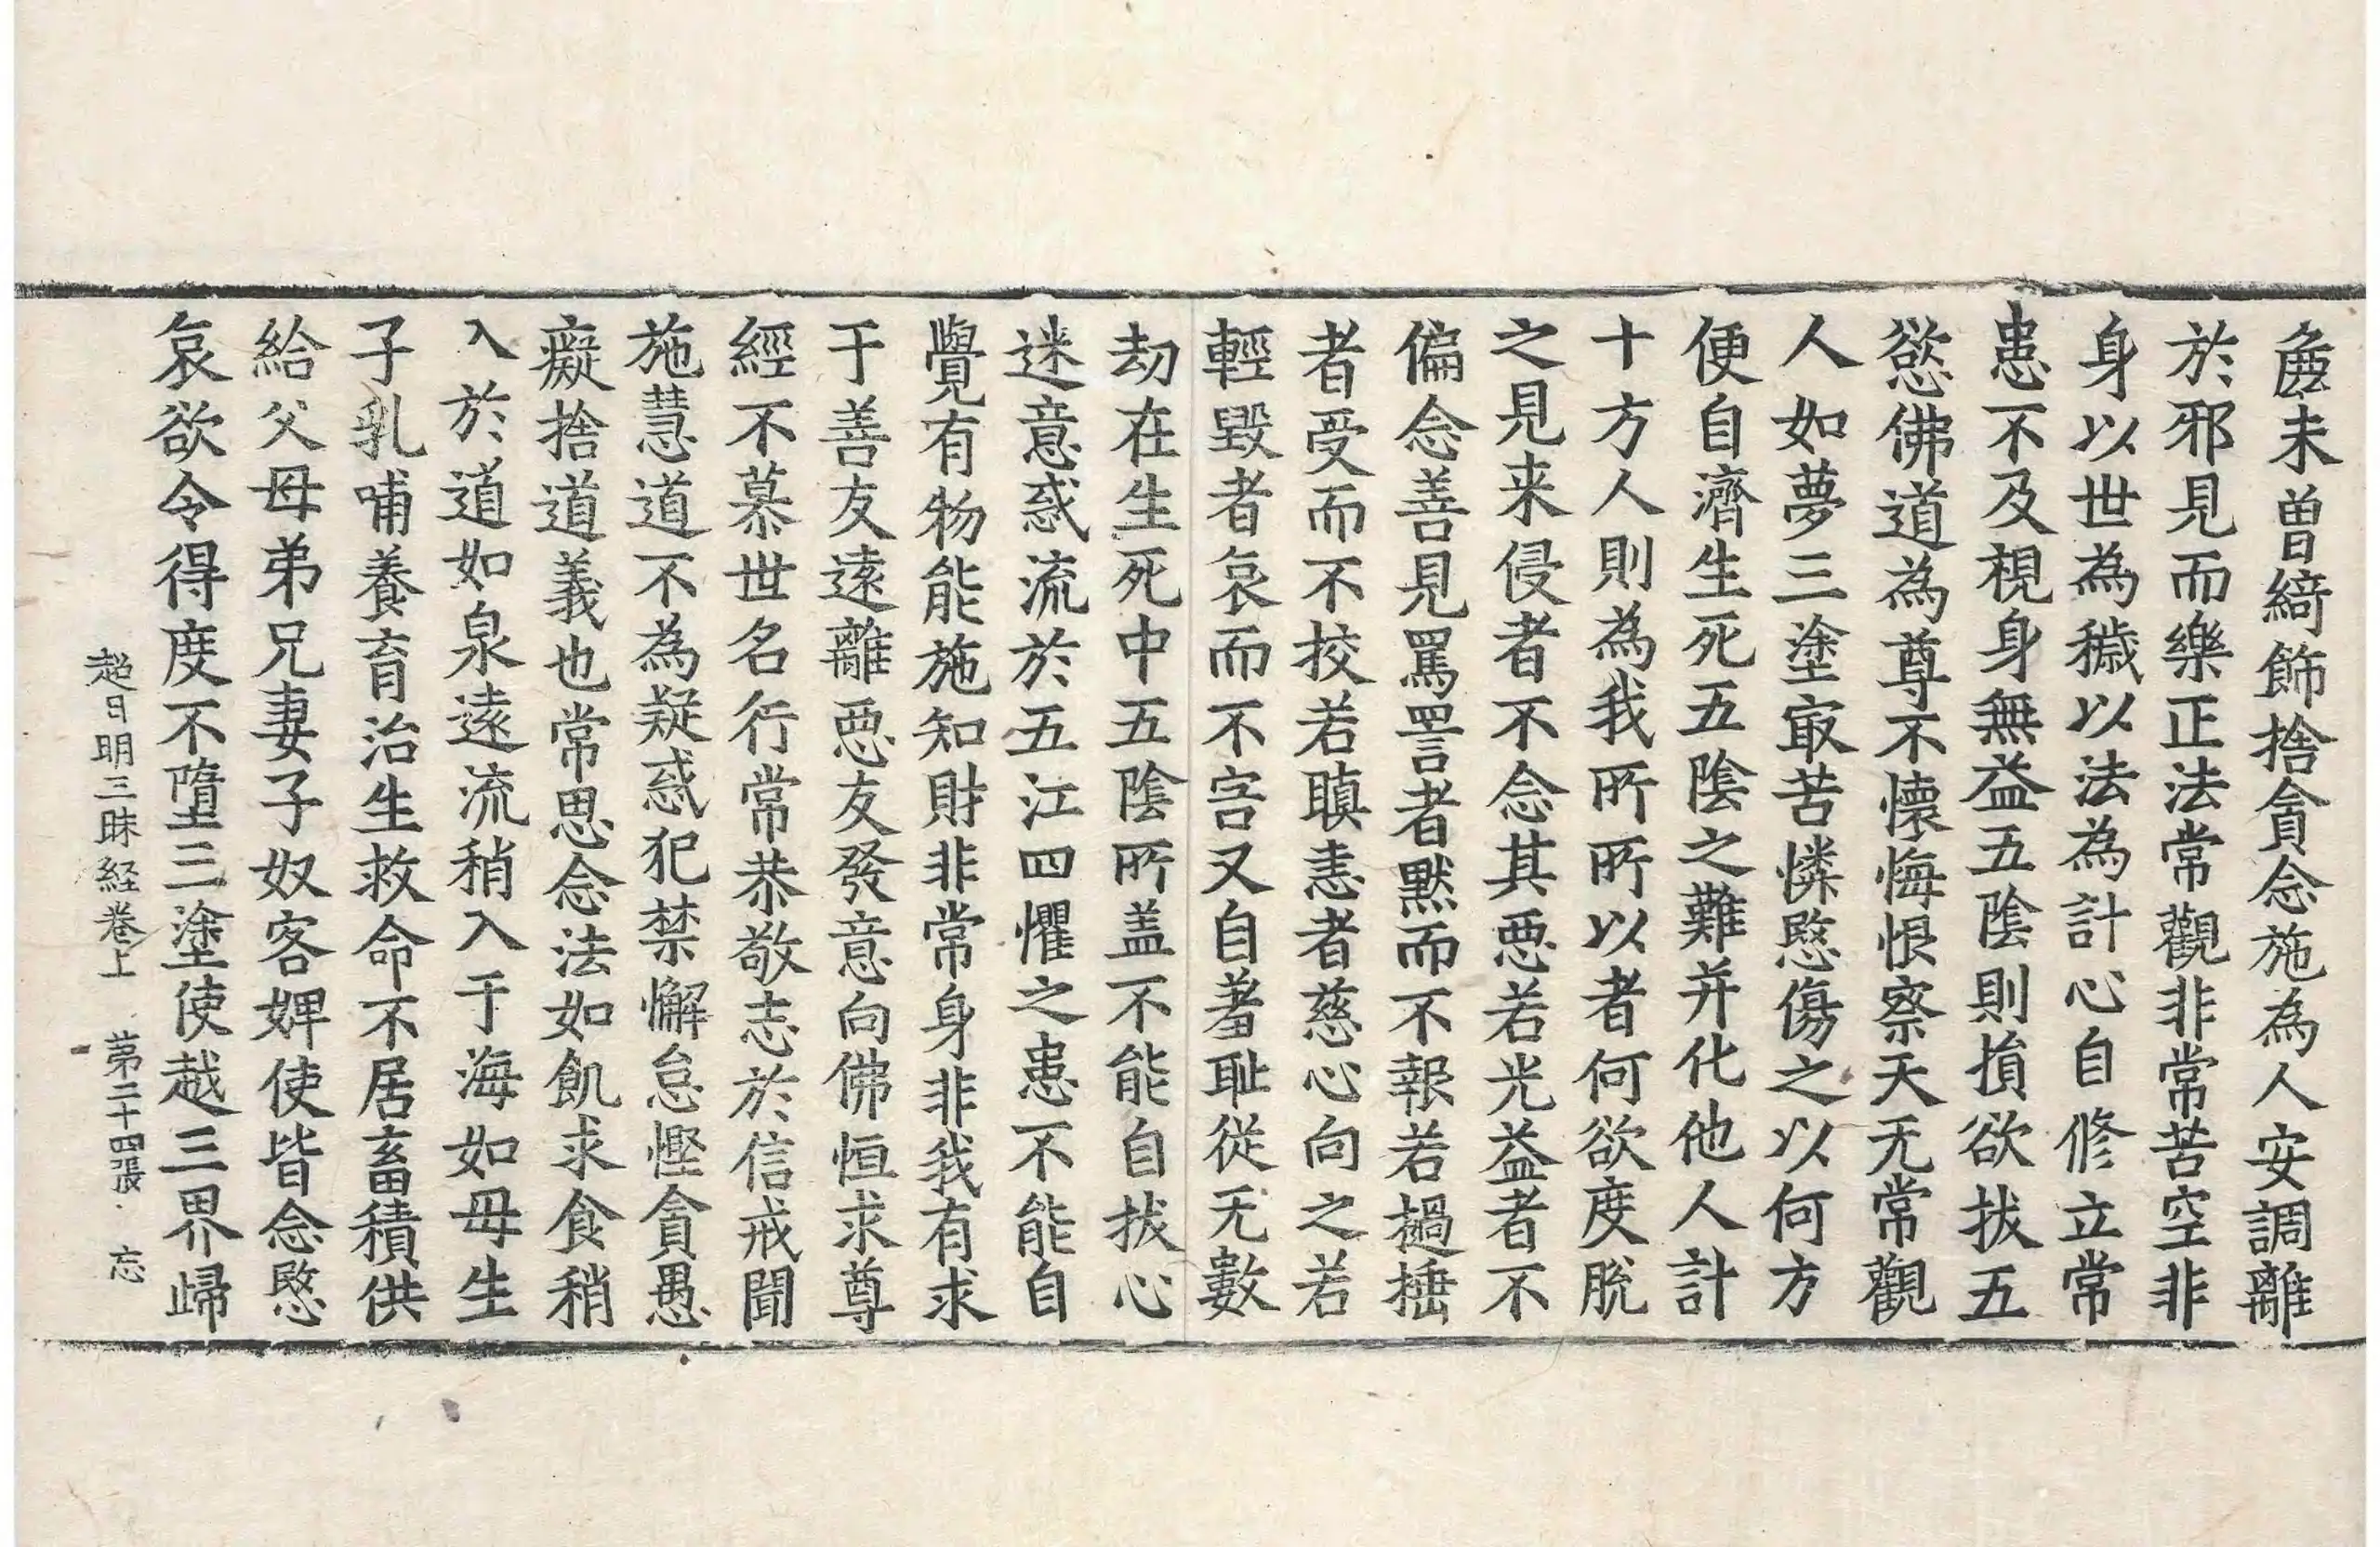 麁未曽綺飾捨貪念施為人安調離
於邪見而樂正法常觀非常苦空非
身以世為穢以法為計心自修立常
患不及視身無益五陰則損欲拔五
慾佛道為尊不懷悔恨察天无常觀
人如夢三塗㝡苦憐愍傷之以何方
便自濟生死五陰之難并化他人計
十方人則為我所所以者何欲度脫
之見来侵者不念其惡若光益者不
偏念善見罵詈者默而不報若撾捶
者受而不挍若瞋恚者慈心向之若
輕毀者哀而不害又自羞耻從无數
劫在生死中五陰所盖不能自拔心
迷意惑流於五江四懼之患不能自
覺有物能施知財非常身非我有求
于善友遠離惡友發意向佛恒求尊
經不慕世名行常恭敬志於信戒聞
施慧道不為疑惑犯禁懈怠慳貪愚
癡捨道義也常思念法如飢求食稍
入於道如泉遠流稍入于海如母生
子乳哺養育治生救命不居畜積供
給父母弟兄妻子奴客婢使皆念愍
哀欲令得度不墮三塗使越三界歸
超日明三昧経卷上 苐二十四張 忘